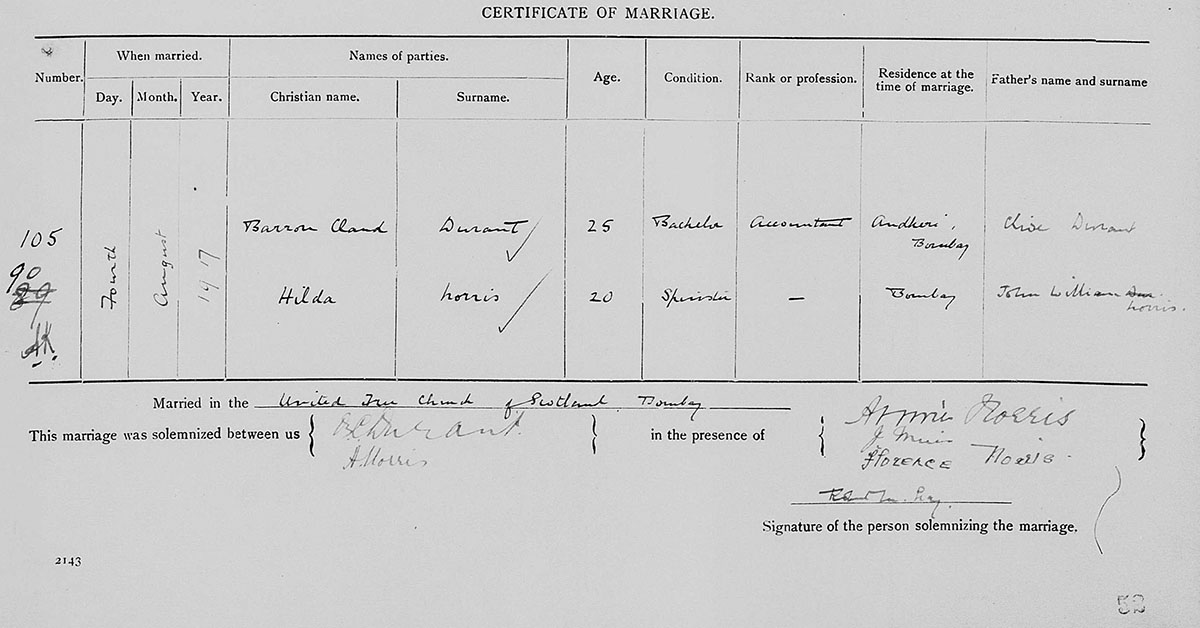 CERTIFICATE OF MARRIAGE.
Number.
When married.
Names of parties.
Age.
Condition.
Rank or profession.
Residence at the
time of marriage.
Father's name and surname
Day.
Month.
Year.
Christian name.
Surname.
105
90
29
AK.
Fourth
August
1917
Barron Claud
Durant
25
Bachelor
Accountant
Andheri,
Bombay
Clive Durant
Hilda
Norris
20
Spinster
—
Bombay
John William
Norris.
Married in the United Free Church of Scotland, Bombay
This marriage was solemnized between us
B.C. Durant.
H. Norris
in the presence of
Annie Norris
J. Muir
FLORENCE Norris.
Signature of the person solemnizing the marriage.
2143
52